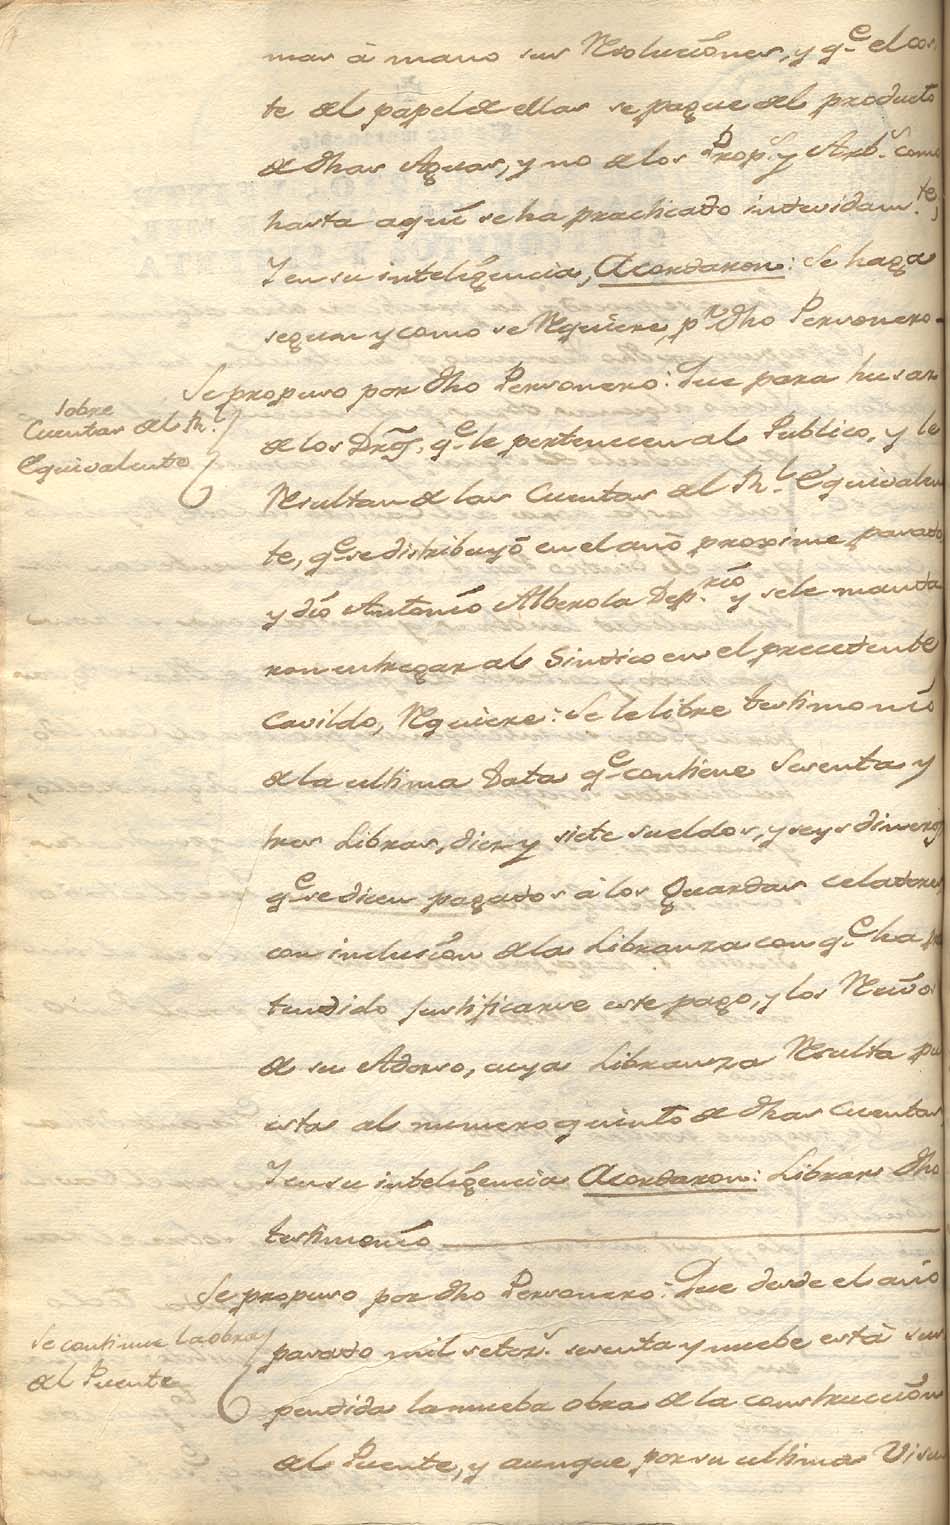 mas à mano sus Resoluciónes, y q.e el cos
te del papel de ellas se pague del producto
de dhas Aguas, y no de los Prop.s y Arb.s como
hasta aquí se ha practicado indevidam.te;
Y en su inteligencia, Acordaron: Se haga
segun y como se Requiere p.r dho Personero
Se propuso por dho Personero: Que para husar
sobre
Cuentas del R.l
Equivalente
de los Dros, q.e le pertenecen al Publico, y le
Resultan de las Cuentas del R.l Equivalen
te, q.e se distribuyó en el año proximo pasado
y dió Antonio Alberola Dep.rio y se le manda
ron entregar al Sindico en el precedente
Cavildo, Requiere: Se le libre testimonio
de la ultima Data q.e contiene Sesenta y
tres Libras, diez y siete sueldos, y seys dineros
q.e se dicen pagados à los Guardas celadores
con inclusión de la Libranza con q.e ha pre
tendido justificarse este pago, y los Reciv.os
de su Adorso, cuya Libranza Resulta pu
esta al numero quinto de dhas Cuentas,
Y en su inteligencia Acordaron: Librar dho
testimonio
Se propuso por dho Personero: Que desde el año
Se continue la obra
del Puente
pasado mil setez.s sesenta y nuebe està sus
pendida la nueba obra de la construcción
del Puente, y aunque por su ultima Visu